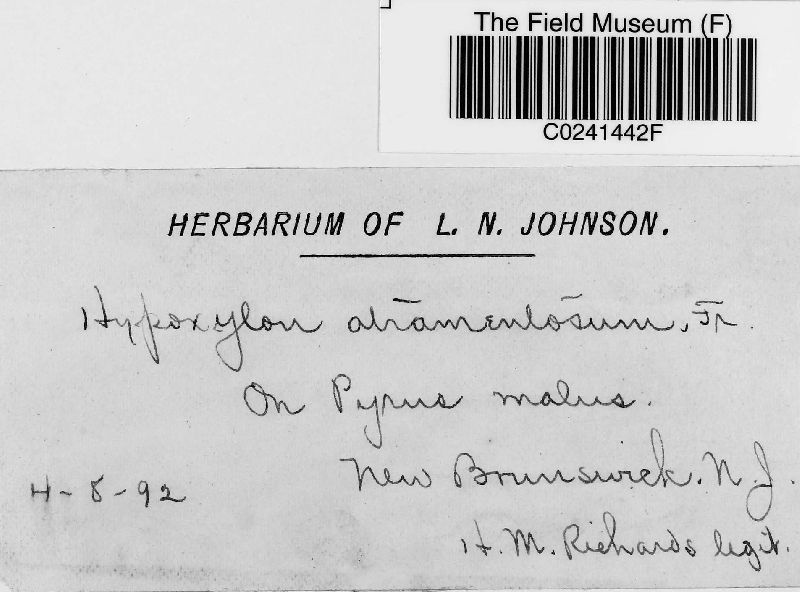 The Field Museum (F)
C0241442F
HERBARIUM OF L. N. JOHNSON.
Hypoxylon atramentosum, Fr.
On Pyrus malus.
New Brunswick. N. J.
4-8-92
H. M. Richards legit.